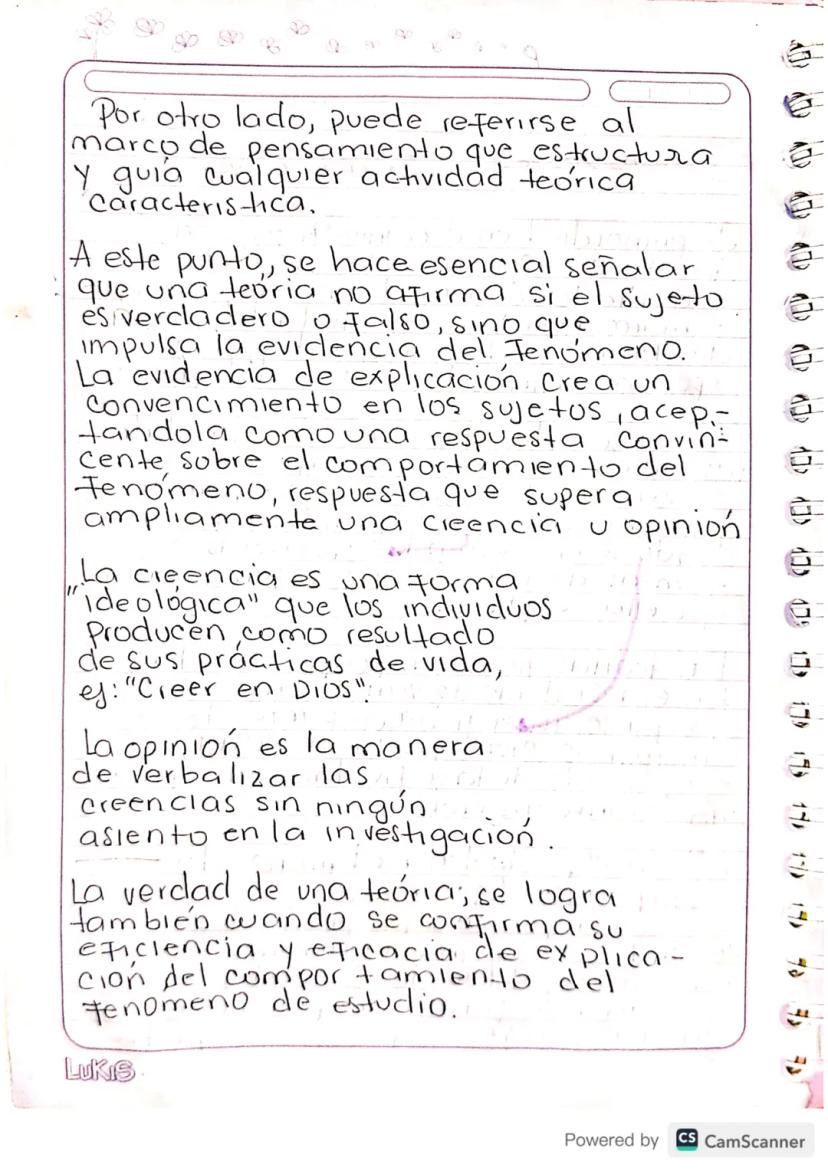 Por otro lado, puede referirse al
marco de pensamiento que estructura
y guía cualquier actividad teórica
característica.
A este punto, se hace esencial señalar
que una teoría no afirma si el sujeto
es verdadero o falso, sino que
impulsa la evidencia del fenómeno.
La evidencia de explicación crea un
convencimiento en los sujetos, acep-
tandola como una respuesta convin-
cente sobre el comportamiento del
fenómeno, respuesta que supera
ampliamente una creencia u opinión
La creencia es una forma
"ideológica" que los individuos
producen como resultado
de sus prácticas de vida,
ej: "Creer en DIOS".
La opinión es la manera
de verbalizar las
creencias sin ningún
asiento en la investigación.
La verdad de una teoría, se logra
también cuando se confirma su
eficiencia y eficacia de explica-
ción del comportamiento del
fenomeno de estudio.
LUKIS
Powered by CS CamScanner